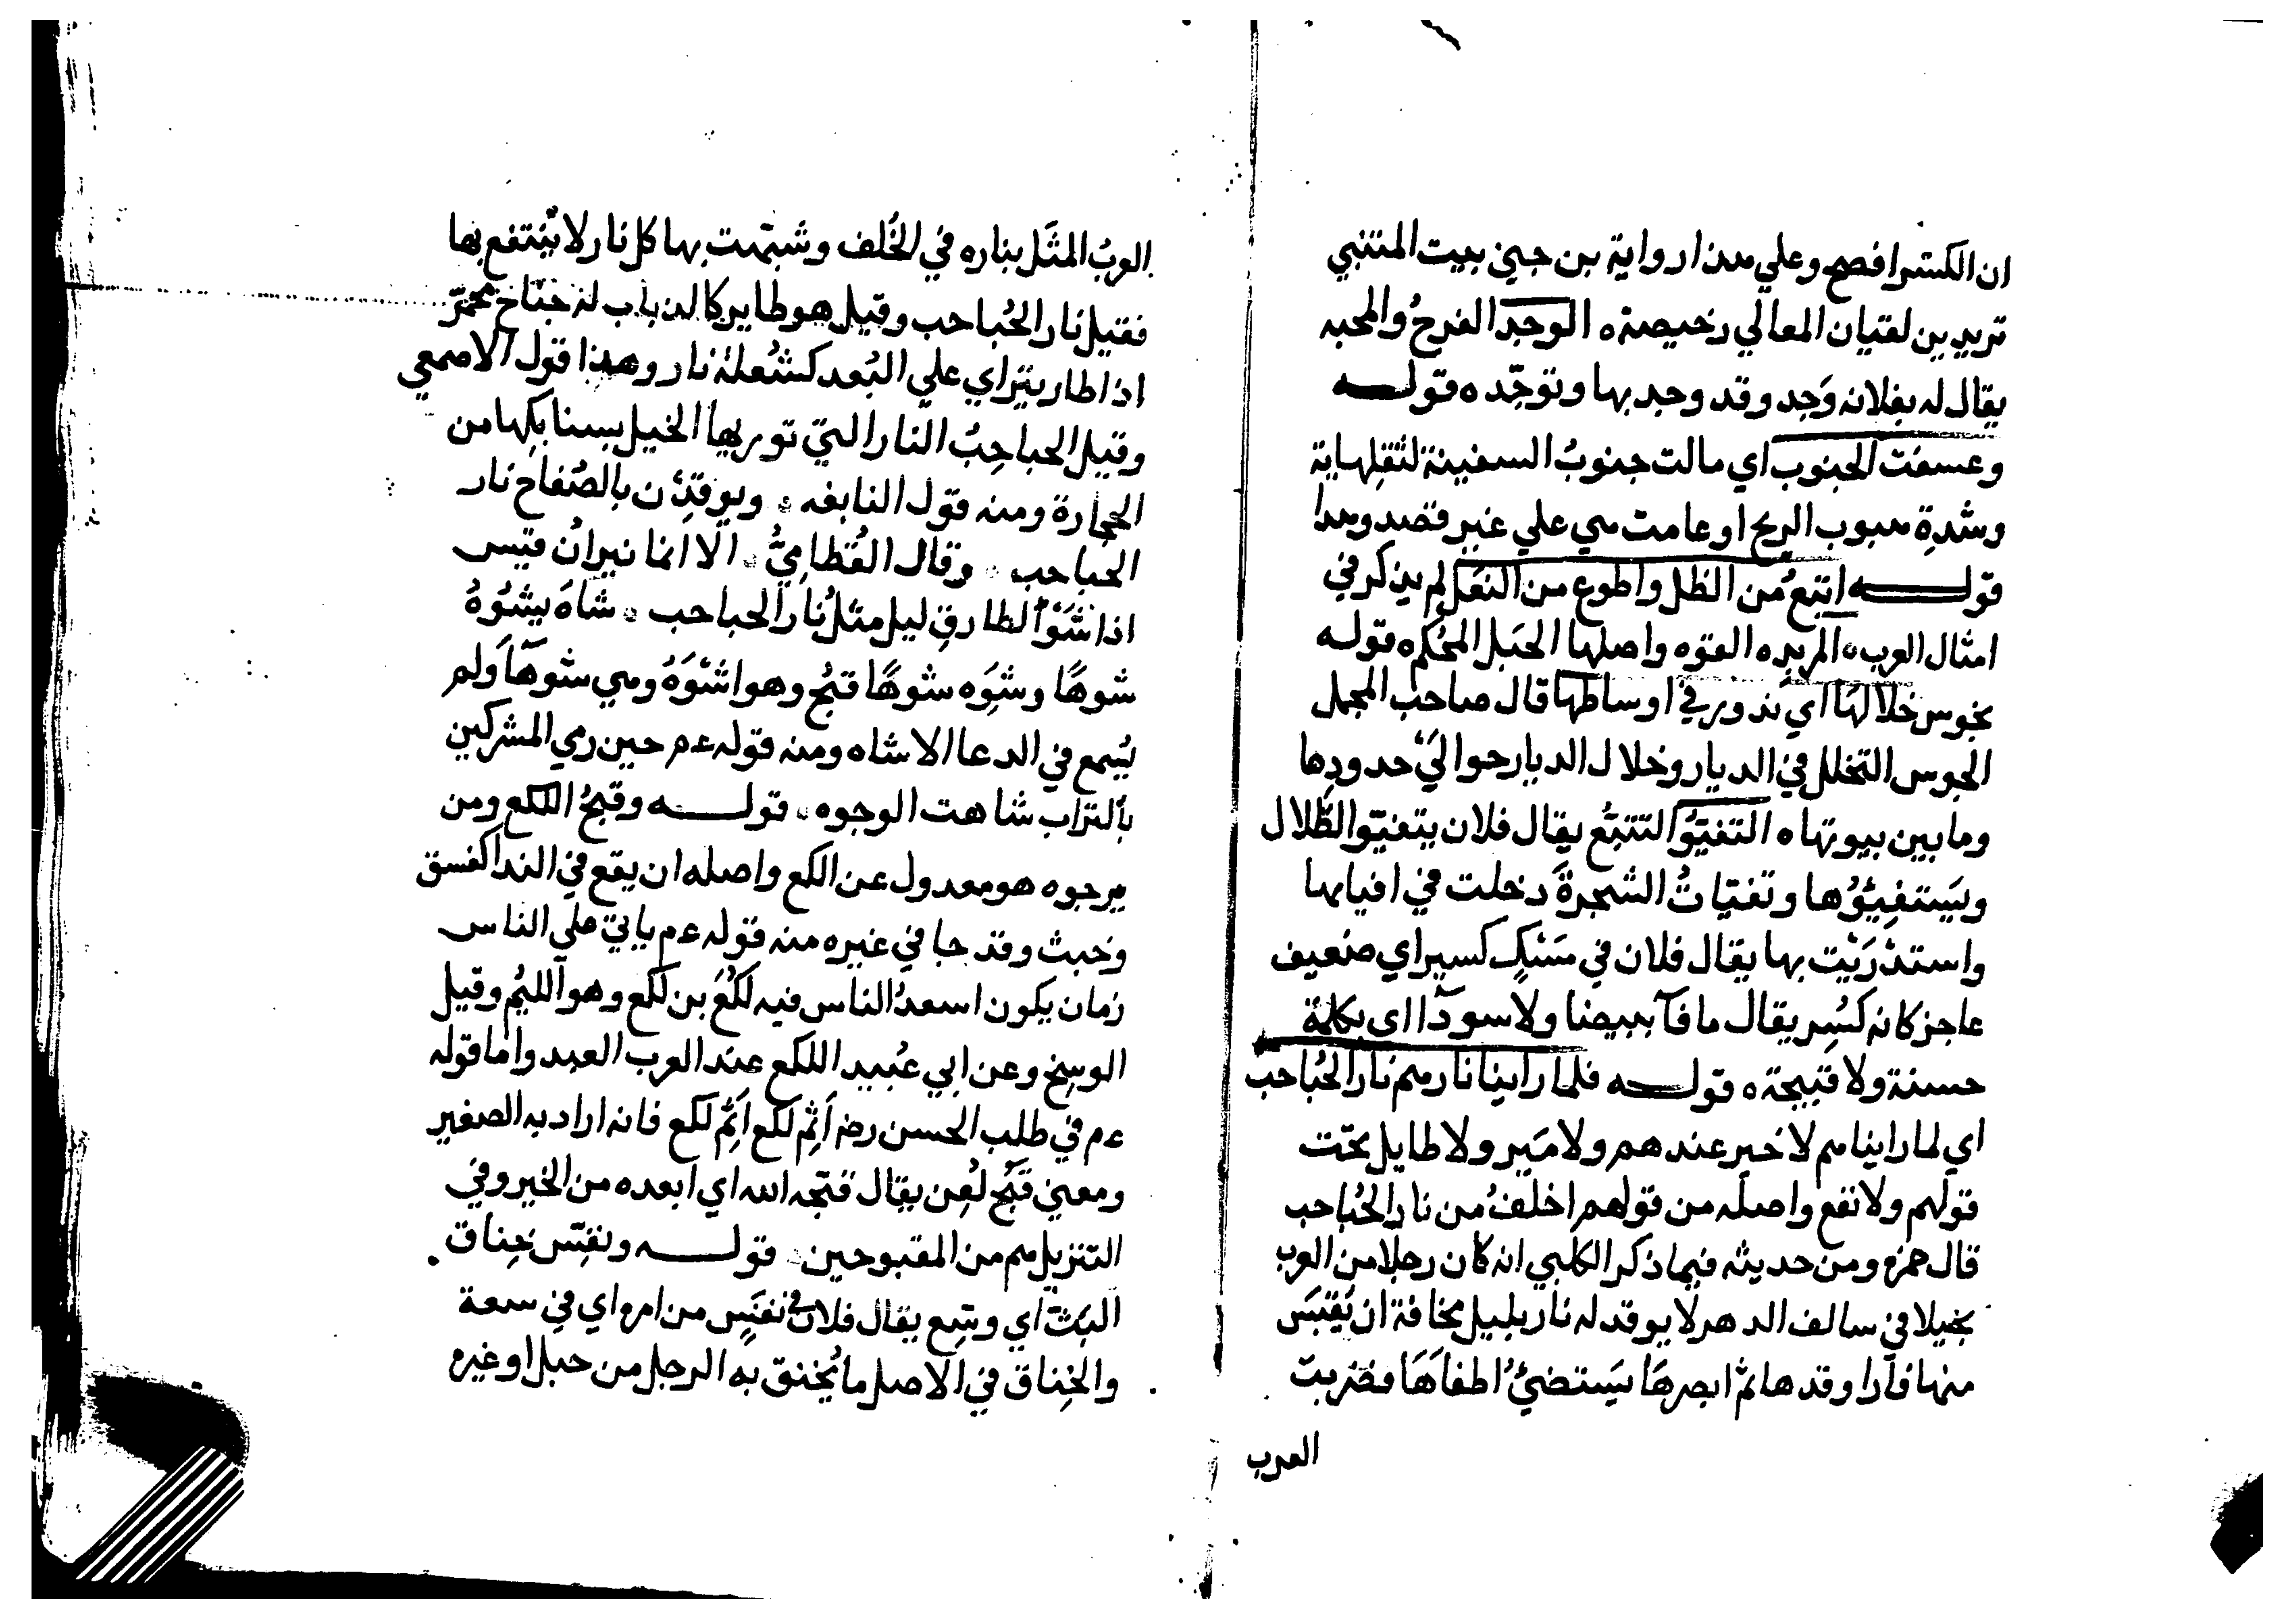 ان الكسر افصح وعلي هذا رواية بن جني بيت المتنبي
تريدين لقيان المعالي رخيصة ه الوجد الفرح والمحبه
يقال له بفلانه وَجد وقد وجد بها وتوجّد ه قولـــه
وعسفت الجنوب اي مالت جنوبُ السفينة لثقلها
وشدةِ هبوب الريح او عامت هي علي غير قصد وهدا
قولـــــه اتبعُ من الظل واطوع من النعَل لم يذكر في
امثال العرب ه المريره القوه واصلها الحَبل المحُكم ه قولـه
نجوس خلالها اي ندور في اوساطها قال صاحب المجمل
الجوس التخلل في الديار وخلال الديار حوالَيْ حدودِها
وما بين بيوتها ه التفيّؤ التتبّع يقال فلان يتفيّو الظّلال
ويَستفيِؤُها وتفيات الشجرةَ دخلت في افيايها
واستذْرَيْت بها يقال فلان في مَسْكٍ كسير اي ضعيف
عاجز كانه كُسِر يقال ما فآ ببيضا ولا سودآ اي بكلمة
حسنة ولا قبيحة ه قولــــه فلما راينا نارهم نار الحُباحب
اي لما رايناهم لا خير عندهم ولا مَير ولا طايل تحت
قولهم ولا نفع واصله من قولهم اخلفُ من نار الحُباحب
قال حمزه ومن حديثه فيما ذكر الكلبي انه كان رجلا من العرب
بخيلا في سالف الدهر لا يوقد له نار بليل مخافة ان يُقْتبَس
منها فان اوقدها ثم ابصرها يَستضيُ اطفاَهَا فضربت
العرب
العربُ المثَل بناره في الخُلف وشبّهت بها كل نار لا يُنتفع بها
فقيل نار الحُباحب وقيل هو طاير كالذباب له جناح محمّر
اذا طار يتراي علي البُعد كشُعلة نار وهذا قول الاصمعي
وقيل الحباحِبُ النار التي توريها الخيل بسنابكها من
الحجارة ومنه قول النابغه ه ويوقِدْن بالصُفاح نار
الحباحب ه وقال القُطاميُّ ه الا انما نيرانُ قيس
اذا شَتَوْا لطارقِ ليل مثلُ نار الحباحب ه شاهَ يشُوهُ
شوهًا وشَوِه شوهًا قبُح وهو اشْوَهُ وهي شوهآ ولم
يُسمع في الدعا الا شاه ومنه قوله ءم حين رمي المشركين
بالتراب شاهت الوجوه ه قولــــه وقبحُ اللكع ومن
يرجوه هو معدول عن الكع واصله ان يقع في الندا كفسق
وخبث وقد جا في غيره منه قوله ءم ياتي علي الناس
زمان يكون اسعدُ الناس فيه لكُعَ بن لكع وهو اللئيم وقيل
الوسِخ وعن ابي عُبيد اللكع عند العرب العبد واما قوله
ءم في طلب الحسن رضه اَثَم لكع اَثَم لكع فانه اراد به الصغير
ومعني قُبّح لُعِن يقال قبّحه الله اي ابعده من الخير وفي
التنزيل هم من المقبوحين ه قولــــه ونفِّس خِناق
البَثّ اي وسّع يقال فلان في نفَسٍ من امره اي في سعة
والخِناق في الاصل ما يُخنق به الرجل من حبل او غيره